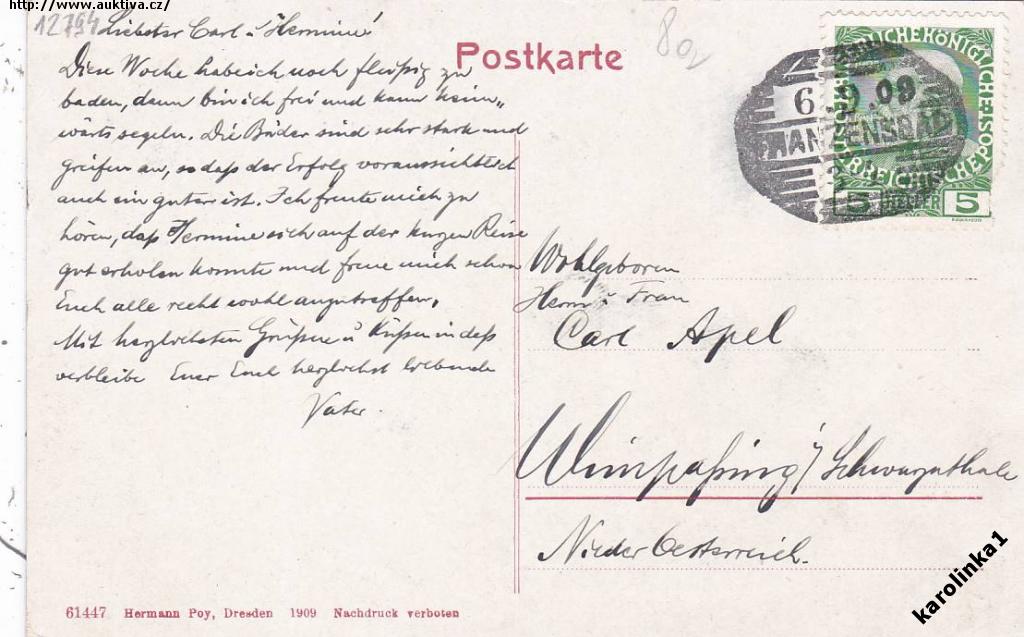 http://www.auktiva.cz/
12794
Liebster Carl u Hermine!
Diese Woche habe ich noch fleißig zu
baden, dann bin ich frei und kann heim„
wärts segeln. Die Bäder sind sehr stark und
greifen an, so daß der Erfolg voraussichtlich
auch ein guter ist. Ich freute mich zu
hören, daß Hermine sich auf der kurzen Reise
gut erholen konnte und freue mich schon
Euch alle recht wohl anzutreffen.
Mit herzlichsten Grüßen u Küßen indeß
verbleibe Euer Euch herzlichst liebende
Vater.
Postkarte
80
6.9.09
FRANZENSBAD
5 HELLER 5
Wohlgeboren
Herrn u Frau
Carl Apel
Wimpaßing i/ Schwarzathale
Nieder Oesterreich.
61447 Hermann Poy, Dresden 1909 Nachdruck verboten
karolinka1